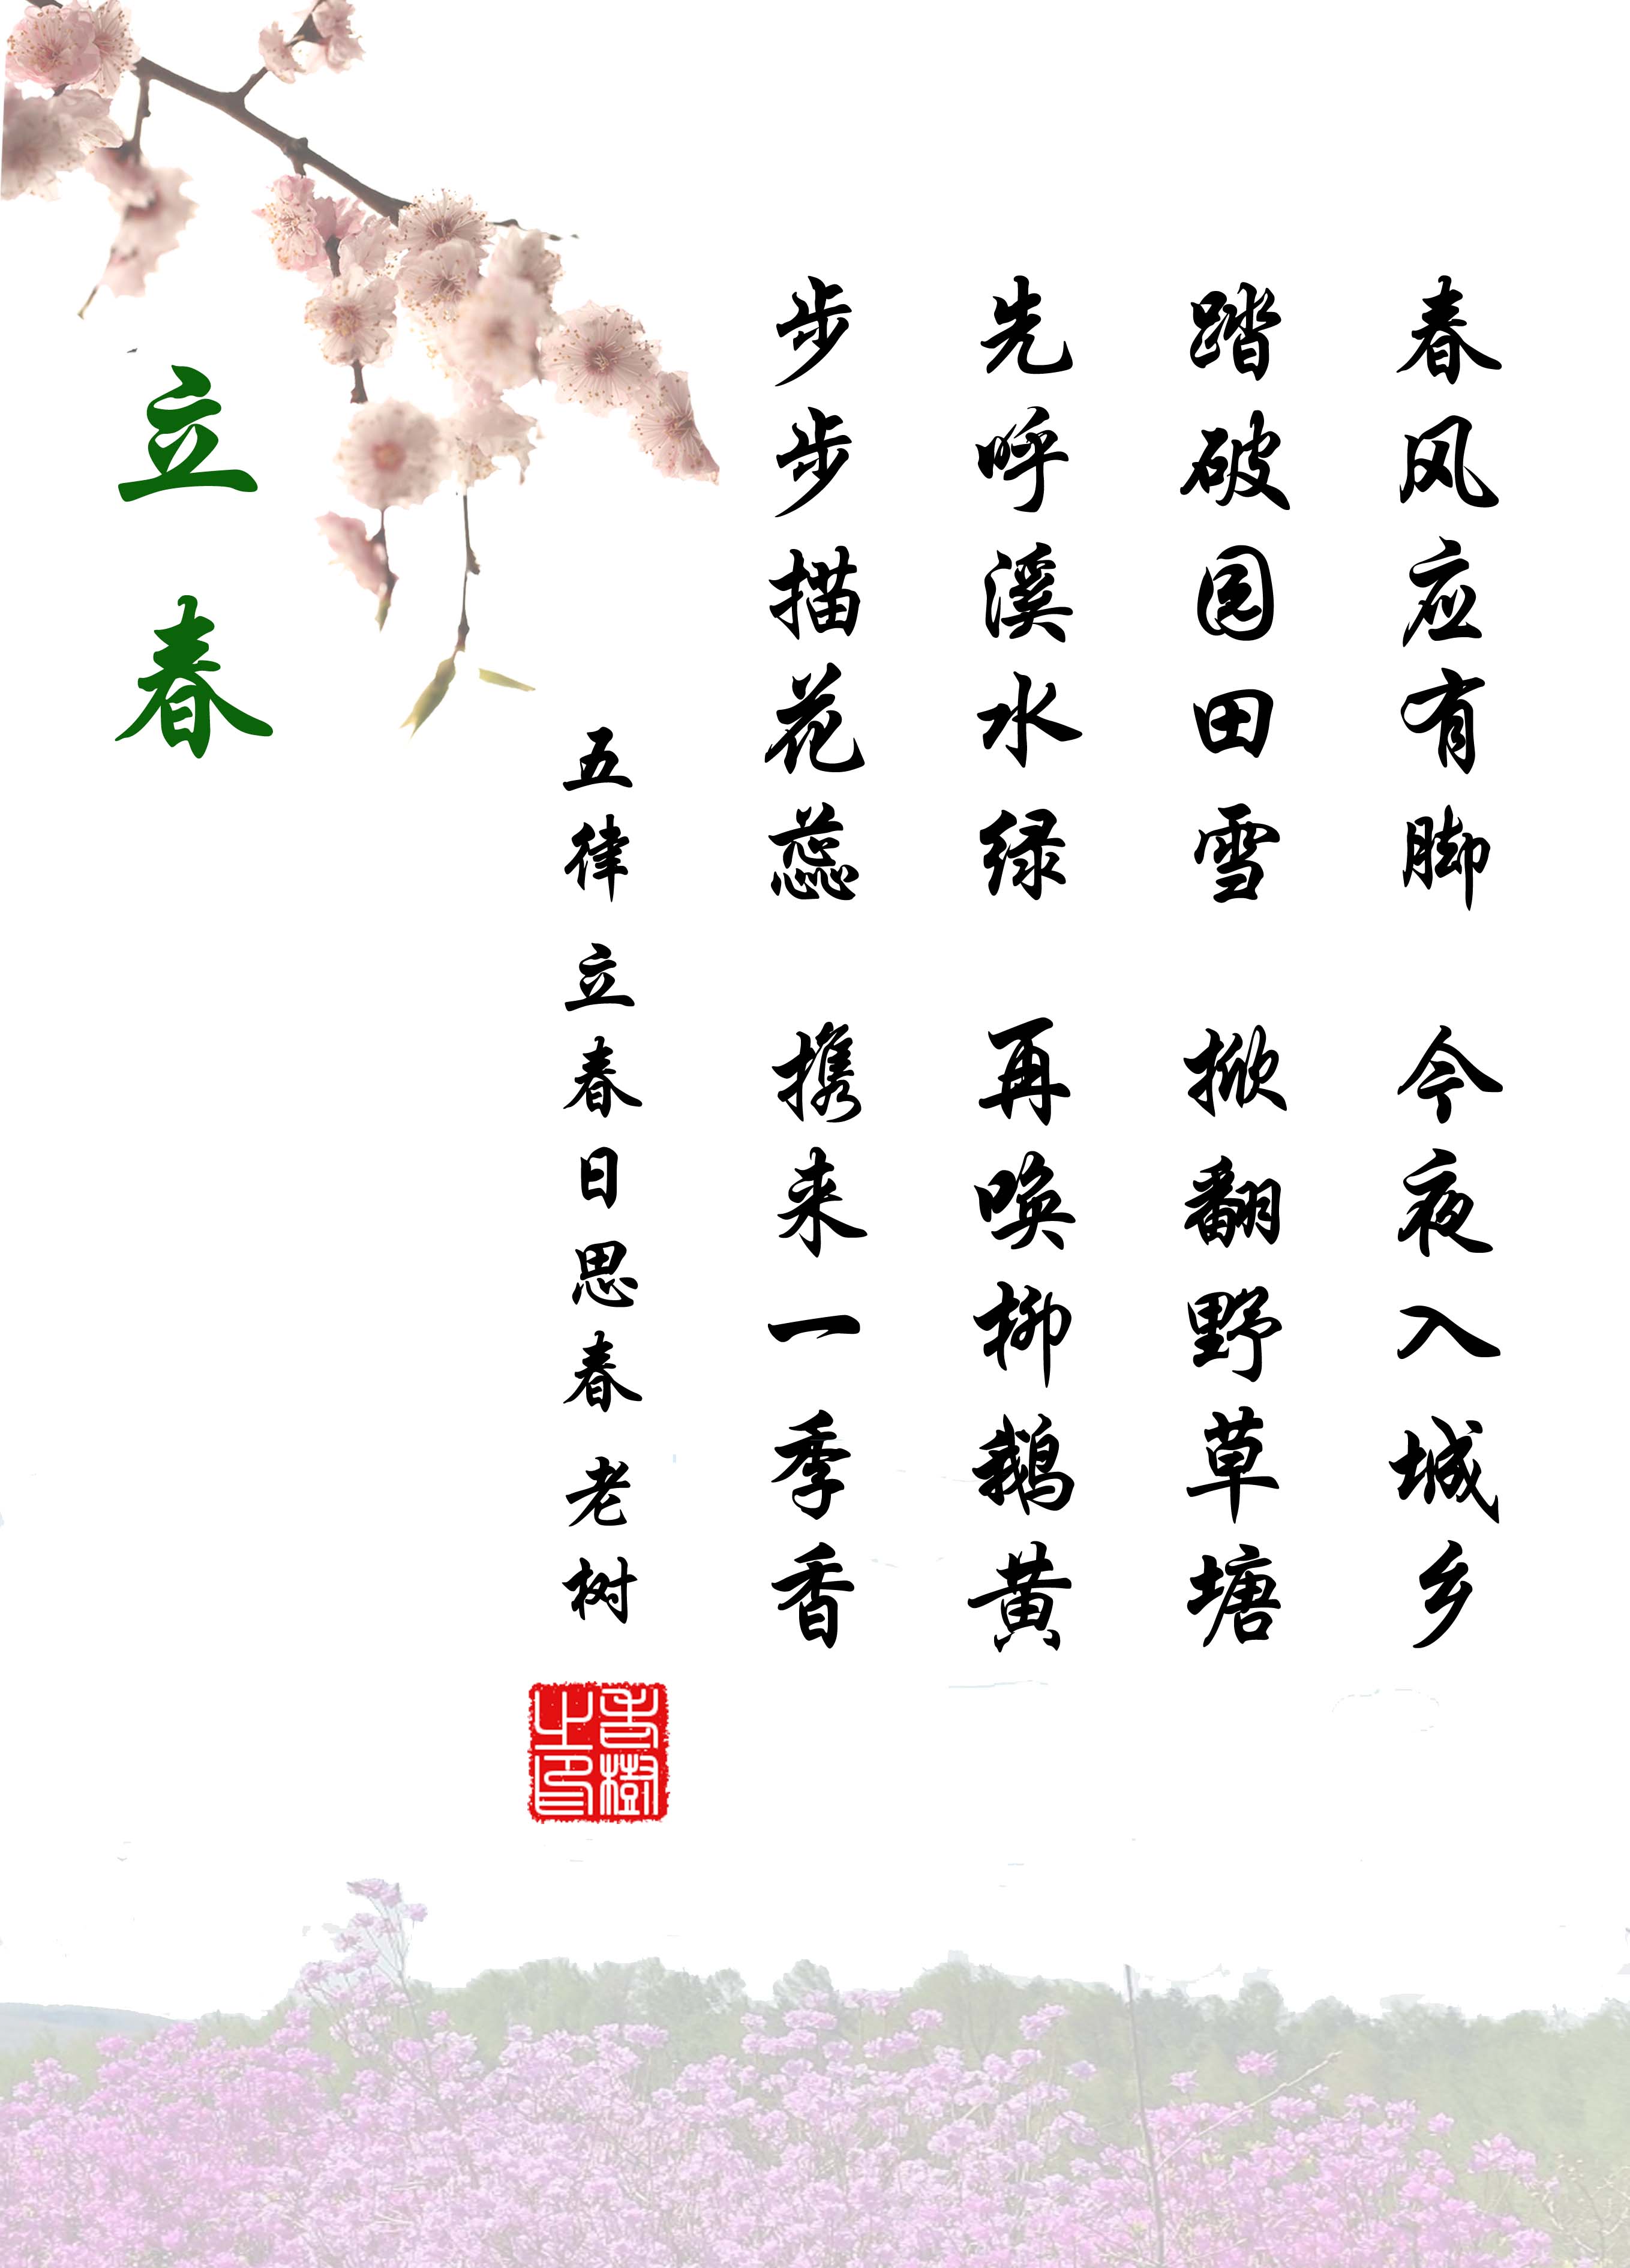 春风应有脚 今夜入城乡
踏破园田雪 掀翻野草塘
先呼溪水绿 再唤柳鹅黄
步步描花蕊 携来一季香
五律 立春日思春 老树
立春
老樹之印